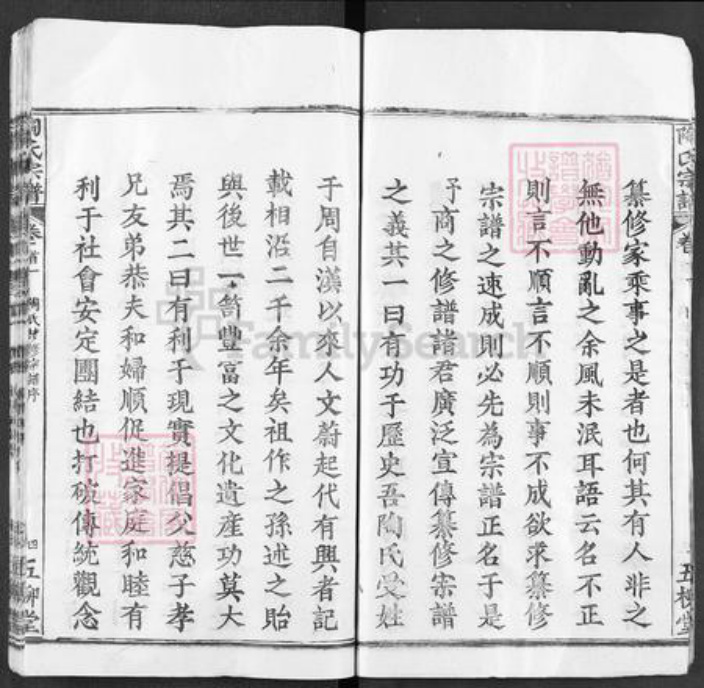 纂修家乘事之是者也何其有人非之
無他動亂之余風未泯耳語云名不正
則言不順言不順則事不成欲求纂修
宗譜之速成則必先為宗譜正名于是
予商之修譜諸君廣泛宣傳纂修宗譜
之義其一曰有功于歷史吾陶氏受姓
于周自漢以來人文蔚起代有興者記
載相沿二千余年矣祖作之孫述之貽
與後世一笥豐富之文化遺產功莫大
焉其二曰有利于現實提倡父慈子孝
兄友弟恭夫和婦順促進家庭和睦有
利于社會安定團結也打破傳統觀念
陶氏宗譜
卷首
四
五柳堂
陶氏宗譜
卷
五柳堂
FamilySearch